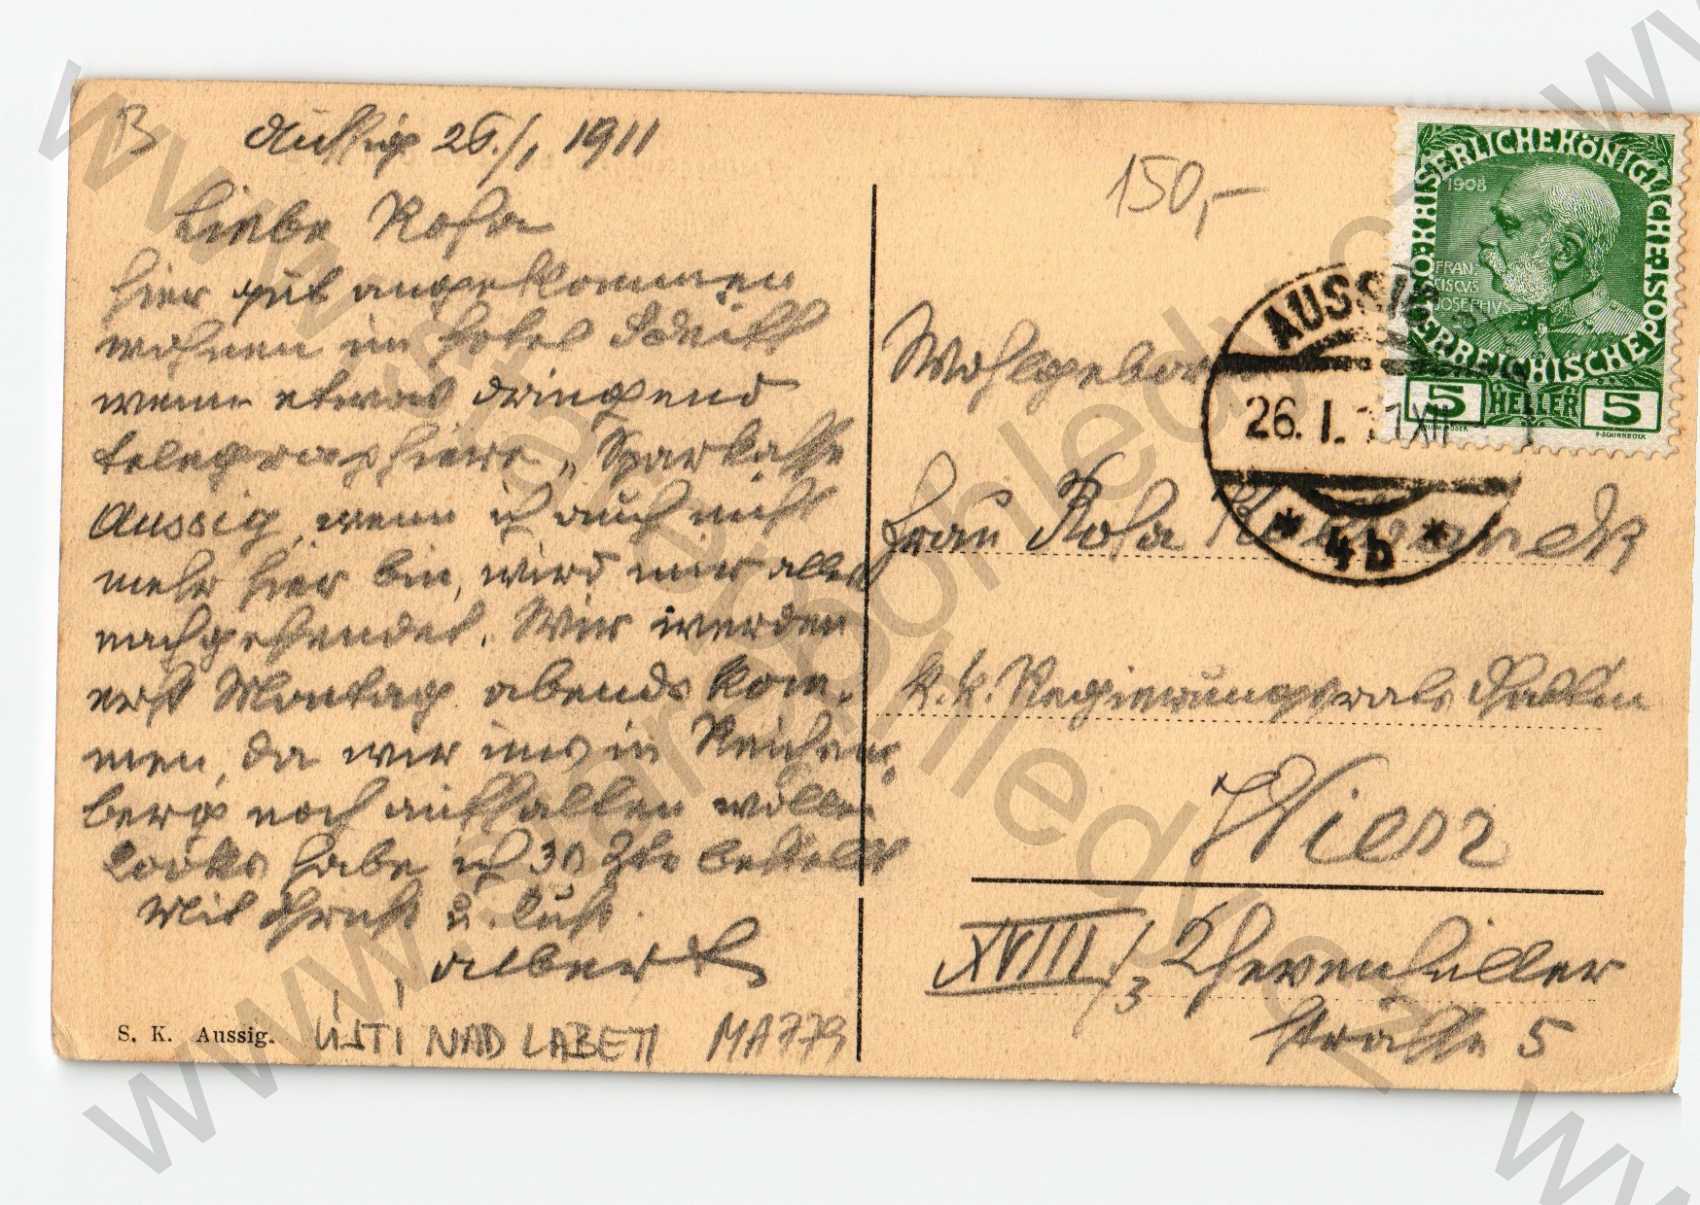 B
Aussig 26./1. 1911
Liebe Rosa
hier gut angekommen
wohnen im Hotel
wenn etwas dringend
telegraphiere „Sparkasse
Aussig, wenn ich auch nicht
mehr hier bin, wird mir alles
nachgesendet. Wir werden
erst Montag abends kom-
men, da wir uns in Reichen-
berg noch aufhalten wollen
habe ich 30 Ztr bestellt
Mit Gruß u. Kuß
Albert
S. K. Aussig.
ÚSTÍ NAD LABEM MA779
150,-
KAISERLICHE KÖNIGLICHE
ÖSTERREICHISCHE POST
1908
FRAN-
CISCVS
JOSEPHVS
5 HELLER 5
AUSSIG
26. I. 11 XII
* 4b *
Wohlgeboren
Frau Rosa
k. k. Regierungsrats Gattin
Wien
XVIII/3 Khevenhüller
Straße 5